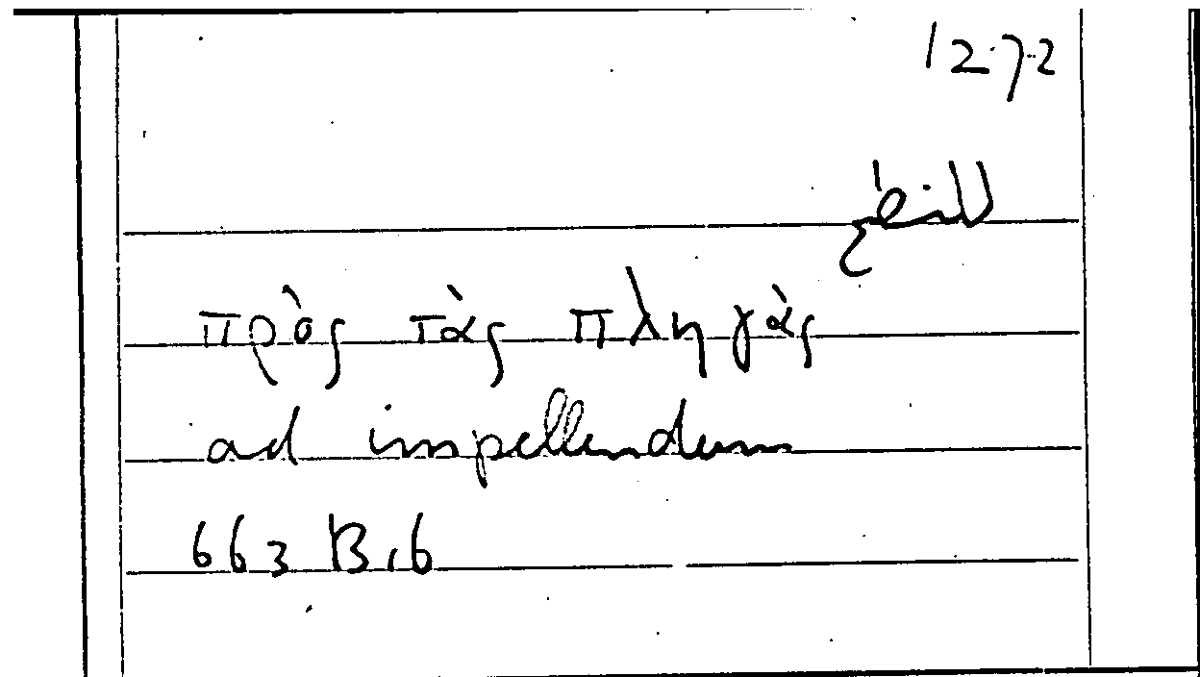 12.7.2
πρὸς τὰς πληγὰς
ad impellendum
663 B,6